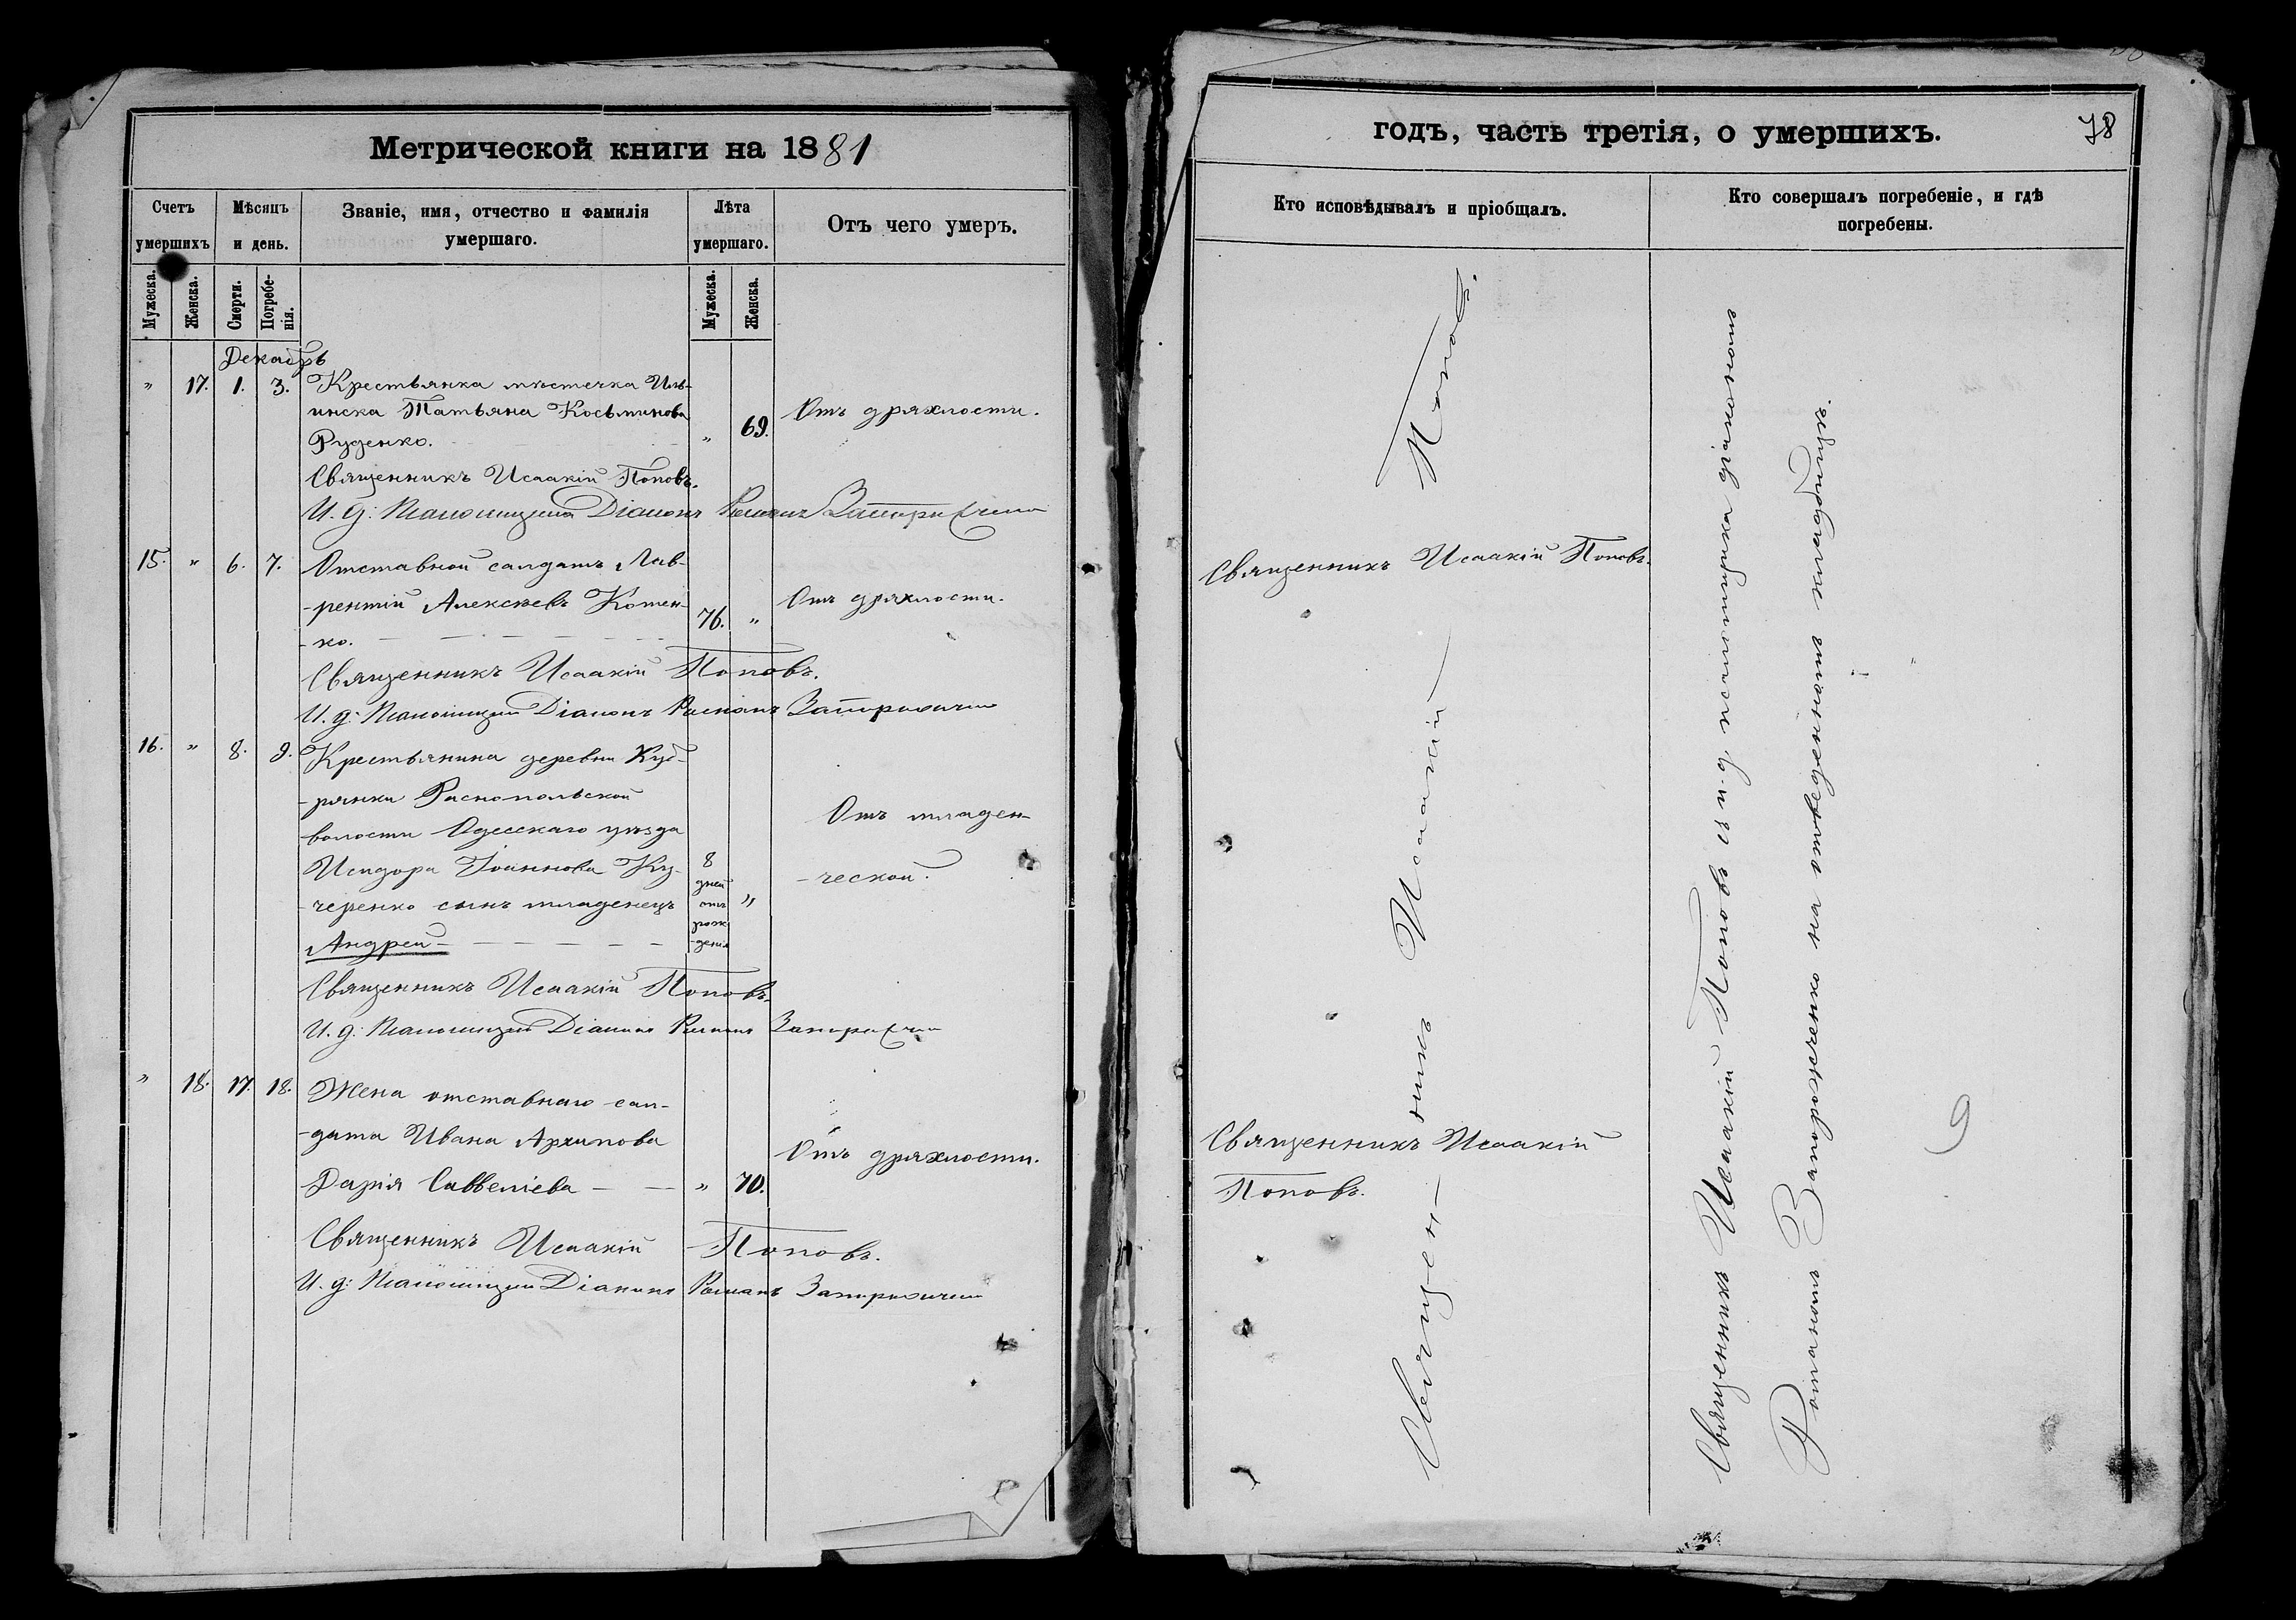 Метрической книги на 1881
Счетъ умершихъ
Мѣсяцъ и день.
Званіе, имя, отчество и фамилія
умершаго.
Лѣта умершаго.
Отъ чего умеръ.
Мужеска.
Женска.
Смерти.
Погребенія.
Мужеска.
Женска.
Декабрь
" 17. 1. 3. Крестьянка мѣстечка Иль-
инска Татьяна Косьминова
Руденко. " 69. Отъ дряхлости.
Священникъ Исаакій Поповъ.
И. д: Псаломщика Діаконъ Романъ Запорожченко
15. " 6. 7. Отставной салдатъ Лав-
-рентій Алексѣевъ Котен-
-ко. 76. " Отъ дряхлости.
Священникъ Исаакій Поповъ.
И. д: Псаломщика Діаконъ Романъ Запорожченко
16. " 8. 9. Крестьянина деревни Куб-
-рянки Раснопольской
волости Одесскаго уѣзда
Исидора Іоаннова Ку-
-черенко сынъ младенецъ
Андрей
8 дней отъ рож-
-денія "
Отъ младен-
-ческой.
Священникъ Исаакій Поповъ.
И. д: Псаломщика Діаконъ Романъ Запорожченко
" 18. 17. 18. Жена отставнаго сал-
-дата Ивана Архипова
Дарія Савеліева " 70. Отъ дряхлости.
Священникъ Исаакій Поповъ.
И. д: Псаломщика Діаконъ Романъ Запорожченко
годъ, часть третія, о умершихъ.
78
Кто исповѣдывалъ и пріобщалъ.
Кто совершалъ погребеніе, и гдѣ
погребены.
Священникъ Исаакій Поповъ.
Священникъ Исаакій
Поповъ.
Священ-никъ Исаакій Поповъ.
Священникъ Исаакій Поповъ съ и. д. псаломщика діакономъ
Романомъ Запорожченко на отведенномъ кладбищѣ.
9